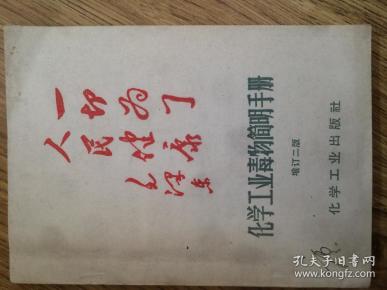 一切为了
人民健康
毛泽东
化学工业毒物简明手册
增订二版
化学工业出版社
孔夫子旧书网